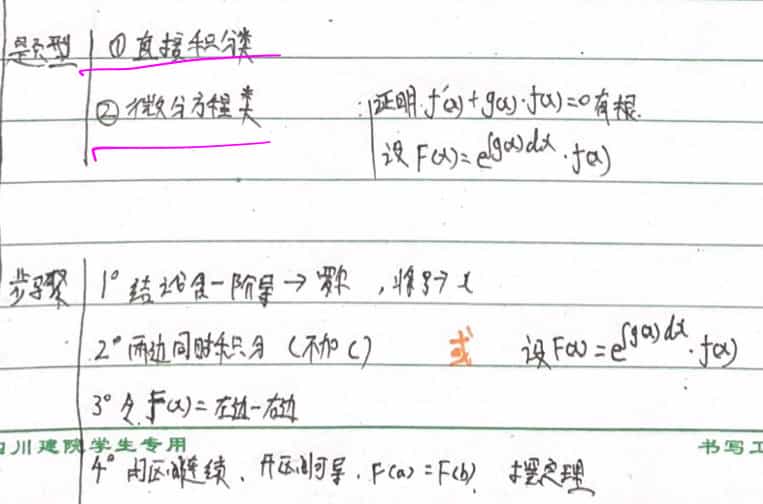 题型 ① 直接积分类
② 微分方程类 证明 f'(x)+g(x)·f(x)=0 有根.
设 F(x)=e^{∫g(x)dx}·f(x)
步骤 1° 结论含一阶导→罗尔,将ξ→x
2° 两边同时积分(不加C) 或 设 F(x)=e^{∫g(x)dx}·f(x)
3° 令 F(x)=左边-右边
川建院学生专用 书写工
4° 闭区间连续、开区间可导、F(a)=F(b) 摆定理